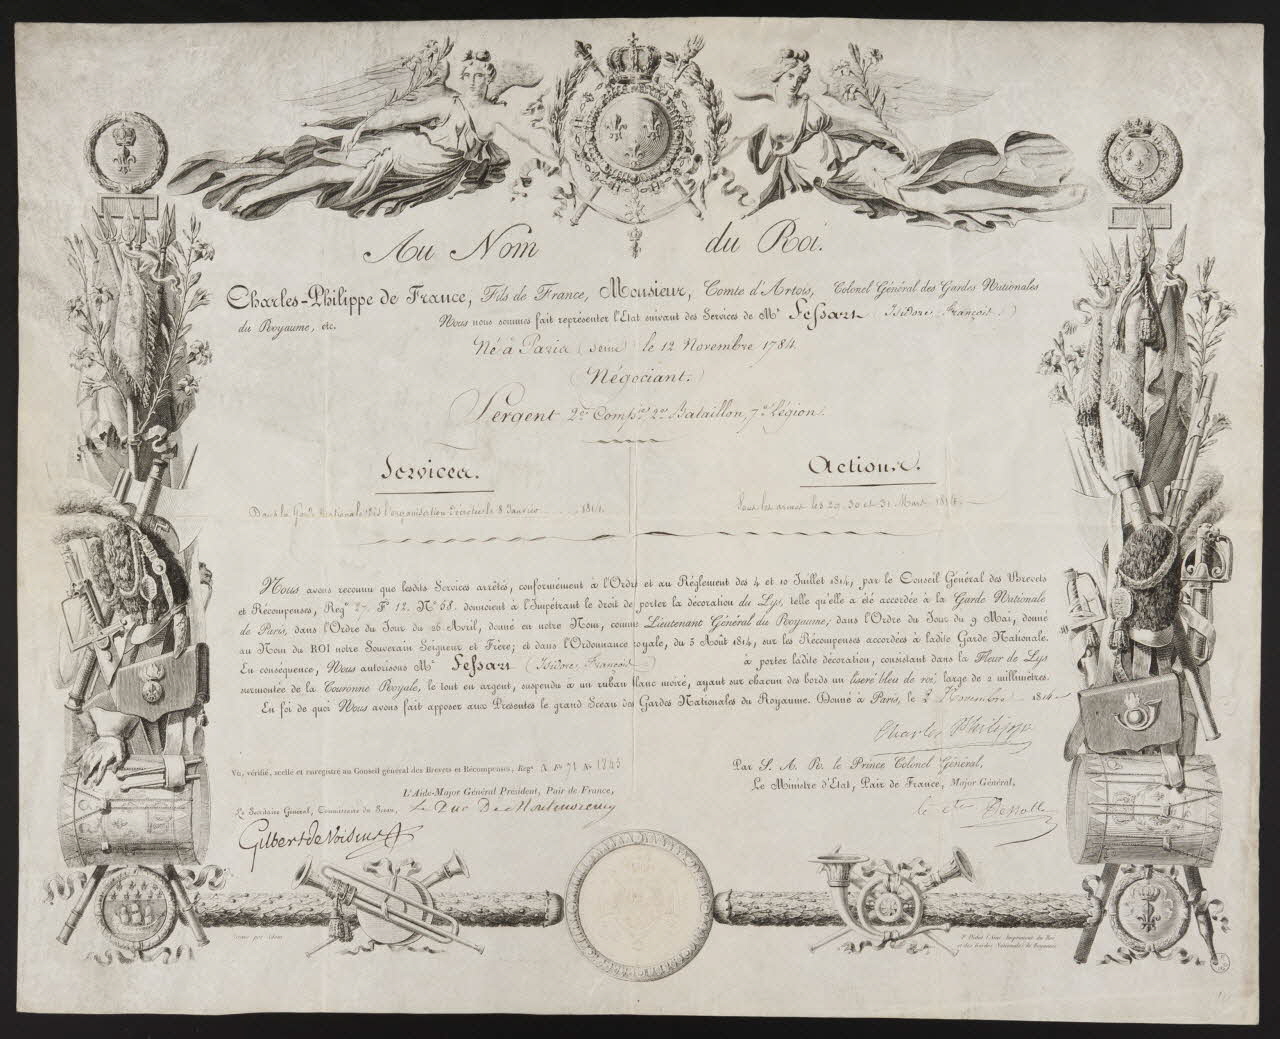 Au Nom du Roi.
Charles-Philippe de France, Fils de France, Monsieur, Comte d'Artois, Colonel Général des Gardes Nationales
du Royaume, etc. Nous nous sommes fait représenter l'Etat suivant des Services de Mr. Fessart (Isidore, François.)
Né à Paris (Seine) le 12 Novembre 1784.
(Négociant.)
Sergent 2e. Compie. 2e. Bataillon, 7e. Légion.
Services. Actions.
Dans la Garde Nationale dès l'organisation décrétée le 8 Janvier 1814. Sous les armes les 29. 30 et 31 Mars 1814.
Nous avons reconnu que lesdits Services arrêtés, conformément à l'Ordre et au Règlement des 4 et 10 Juillet 1814, par le Conseil Général des Brevets
et Récompenses, Regre 27. Fo 12. No 68. donnoient à l'Impétrant le droit de porter la décoration du Lys, telle qu'elle a été accordée à la Garde Nationale
de Paris, dans l'Ordre du Jour du 26 Avril, donné en notre Nom, comme Lieutenant Général du Royaume, dans l'Ordre du Jour du 9 Mai, donné
au Nom du ROI notre Souverain Seigneur et Frère; et dans l'Ordonnance royale, du 5 Août 1814, sur les Récompenses accordées à ladite Garde Nationale.
En conséquence, Nous autorisons Mr. Fessart (Isidore, François) à porter ladite décoration, consistant dans la Fleur de Lys
surmontée de la Couronne Royale, le tout en argent, suspendu à un ruban blanc moiré, ayant sur chacun des bords un liseré bleu de roi, large de 2 millimètres.
En foi de quoi Nous avons fait apposer aux Présentes le grand Sceau des Gardes Nationales du Royaume. Donné à Paris, le 2 Novembre 1814
Charles Philippe
Vu, vérifié, scellé et enregistré au Conseil général des Brevets et Récompenses, Rege A Fo 71 No 1845
Par S. A. R. le Prince Colonel Général,
Le Ministre d'Etat, Pair de France, Major Général,
L'Aide-Major Général Président, Pair de France,
Le Secrétaire Général, Commissaire du Sceau,
le Duc De Montmorency
Gilbert de Voisins
Gravé par Adam
P. Didot l'Ainé Imprimeur du Roi
et des Gardes Nationales du Royaume